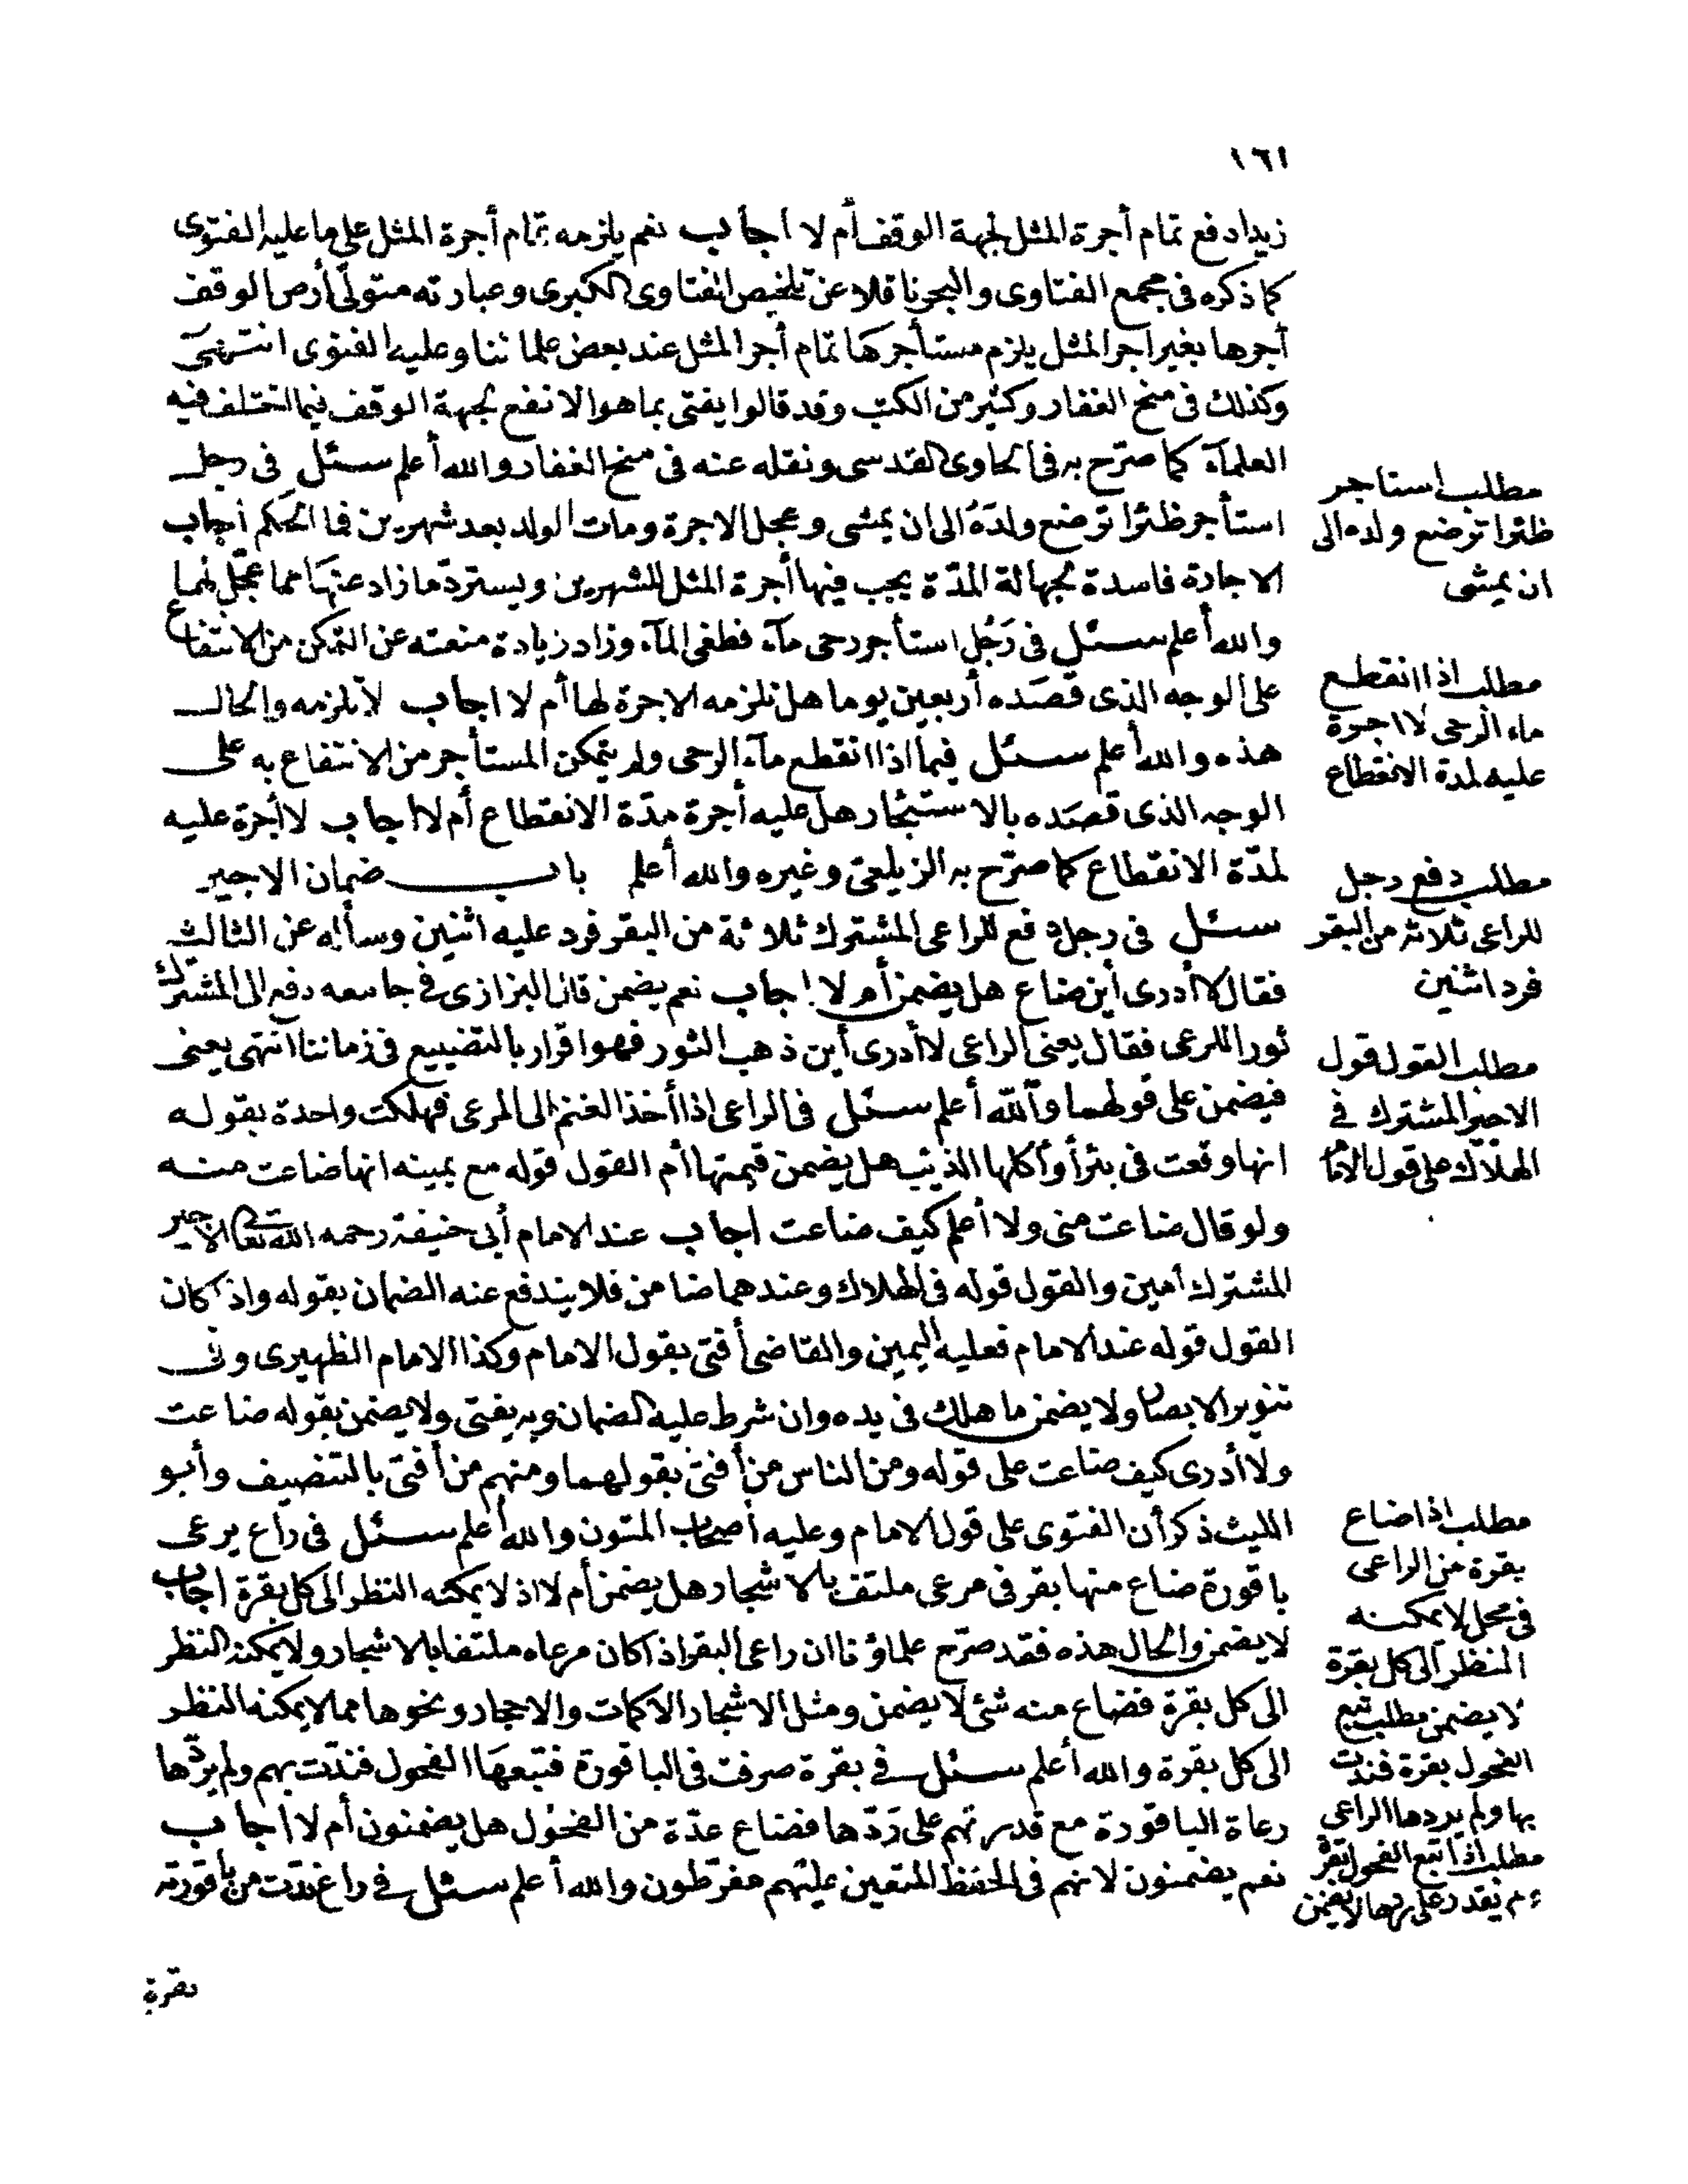 ١٦١
زيدا دفع تمام أجرة المثل لجهة الوقف أم لا اجاب نعم يلزمه تمام أجرة المثل على ما عليه الفتوى
كما ذكره فى مجمع الفتاوى والبحر ناقلا عن تلخيص الفتاوى الكبرى وعبارته متولى أرض الوقف
أجرها بغير اجر المثل يلزم مستأجرها تمام أجر المثل عند بعض علمائنا وعليه الفتوى انتهى
وكذلك فى منح الغفار وكثير من الكتب وقد قالوا يفتى بما هو الانفع لجهة الوقف فيما اختلف فيه
العلمآء كما صرّح به فى الحاوى القدسى ونقله عنه فى منح الغفار والله أعلم سئل فى رجل
استأجر ظئرا ترضع ولدَهُ الى ان يمشى وعجل الاجرة ومات الولد بعد شهرين فما الحكم اجاب
الاجارة فاسدة لجهالة المدّة يجب فيها أجرة المثل للشهرين ويستردّ ما زاد عنهَا مما عجّل لهما
والله أعلم سئل فى رَجُل استأجر رحى مآء فطغى المآء وزاد زيادة منعته عن التمكن من الانتفاع
على الوجه الذى قصَده أربعين يوما هل تلزمه الاجرة لها أم لا اجاب لا تلزمه والحال
هذه والله أعلم سئل فيما اذا انقطع مآء الرحى ولم يتمكن المستأجر من الانتفاع به على
الوجه الذى قصَده بالاستئجار هل عليه أجرة مدّة الانقطاع أم لا اجاب لا أجرة عليه
لمدّة الانقطاع كما صرّح به الزيلعى وغيره والله أعلم باب ضمان الاجير
سئل فى رجل دفع للراعى المشترك ثلاثة من البقر فرد عليه اثنين وسأله عن الثالث
فقال لا أدرى أين ضاع هل يضمن أم لا اجاب نعم يضمن قال البزازى فى جامعه دفع الى المشترك
ثورا للرعى فقال يعنى الراعى لا أدرى أين ذهب الثور فهو اقرار بالتضييع فى زماننا انتهى يعنى
فيضمن على قولهما والله أعلم سئل فى الراعى اذا أخذ الغنم الى المرعى فهلكت واحدة بقوله
انها وقعت فى بئر أو أكلها الذئب هل يضمن قيمتها أم القول قوله مع يمينه انها ضاعت منه
ولو قال ضاعت منى ولا أعلم كيف ضاعت اجاب عند الامام أبى حنيفة رحمه الله تعالى الاجير
المشترك أمين والقول قوله فى الهلاك وعندهما ضامن فلا يندفع عنه الضمان بقوله واذا كان
القول قوله عند الامام فعليه اليمين والقاضى أفتى بقول الامام وكذا الامام الظهيرى وفى
تنوير الابصار ولا يضمن ما هلك فى يده وان شرط عليه الضمان وبه يفتى ولا يضمن بقوله ضاعت
ولا أدرى كيف ضاعت على قوله ومن الناس من أفتى بقولهما ومنهم من أفتى بالتنصيف وأبو
الليث ذكر أن الفتوى على قول الامام وعليه أصحاب المتون والله أعلم سئل فى راع يرعى
باقورة ضاع منها بقر فى مرعى ملتف بالاشجار هل يضمن أم لا اذ لا يمكنه النظر الى كل بقرة اجاب
لا يضمن والحال هذه فقد صرّح علماؤنا ان راعى البقر اذا كان مرعاه ملتفا بالاشجار ولا يمكنه النظر
الى كل بقرة فضاع منه شئ لا يضمن ومثل الاشجار الاكمات والاحجار ونحوها مما لا يمكنه النظر
الى كل بقرة والله أعلم سئل فى بقرة صرفت فى الباقورة فتبعهَا الفحول فندّت بهم ولم يردّها
رعاة الباقورة مع قدرتهم على رَدّها فضاع عدّة من الفحول هل يضمنون أم لا اجاب
نعم يضمنون لانهم فى الحفظ المتعين عليهم مفرّطون والله أعلم سئل فى راع ندّت من باقورته
بقرة
مطلب استاجر
ظئرا ترضع ولده الى
ان يمشى
مطلب اذا انقطع
ماء الرحى لا اجرة
عليه لمدة الانقطاع
مطلب دفع رجل
للراعى ثلاثة من البقر
فرد اثنين
مطلب القول قول
الاجير المشترك فى
الهلاك على قول الامام
مطلب اذا ضاع
بقرة من الراعى
فى محل لا يمكنه
النظر الى كل بقرة
لا يضمن مطلب تبع
الفحول بقرة فندت
بها ولم يردها الراعى
مطلب اذا تبع الفحول بقرة
ولم يقدر على ردها لا يضمن